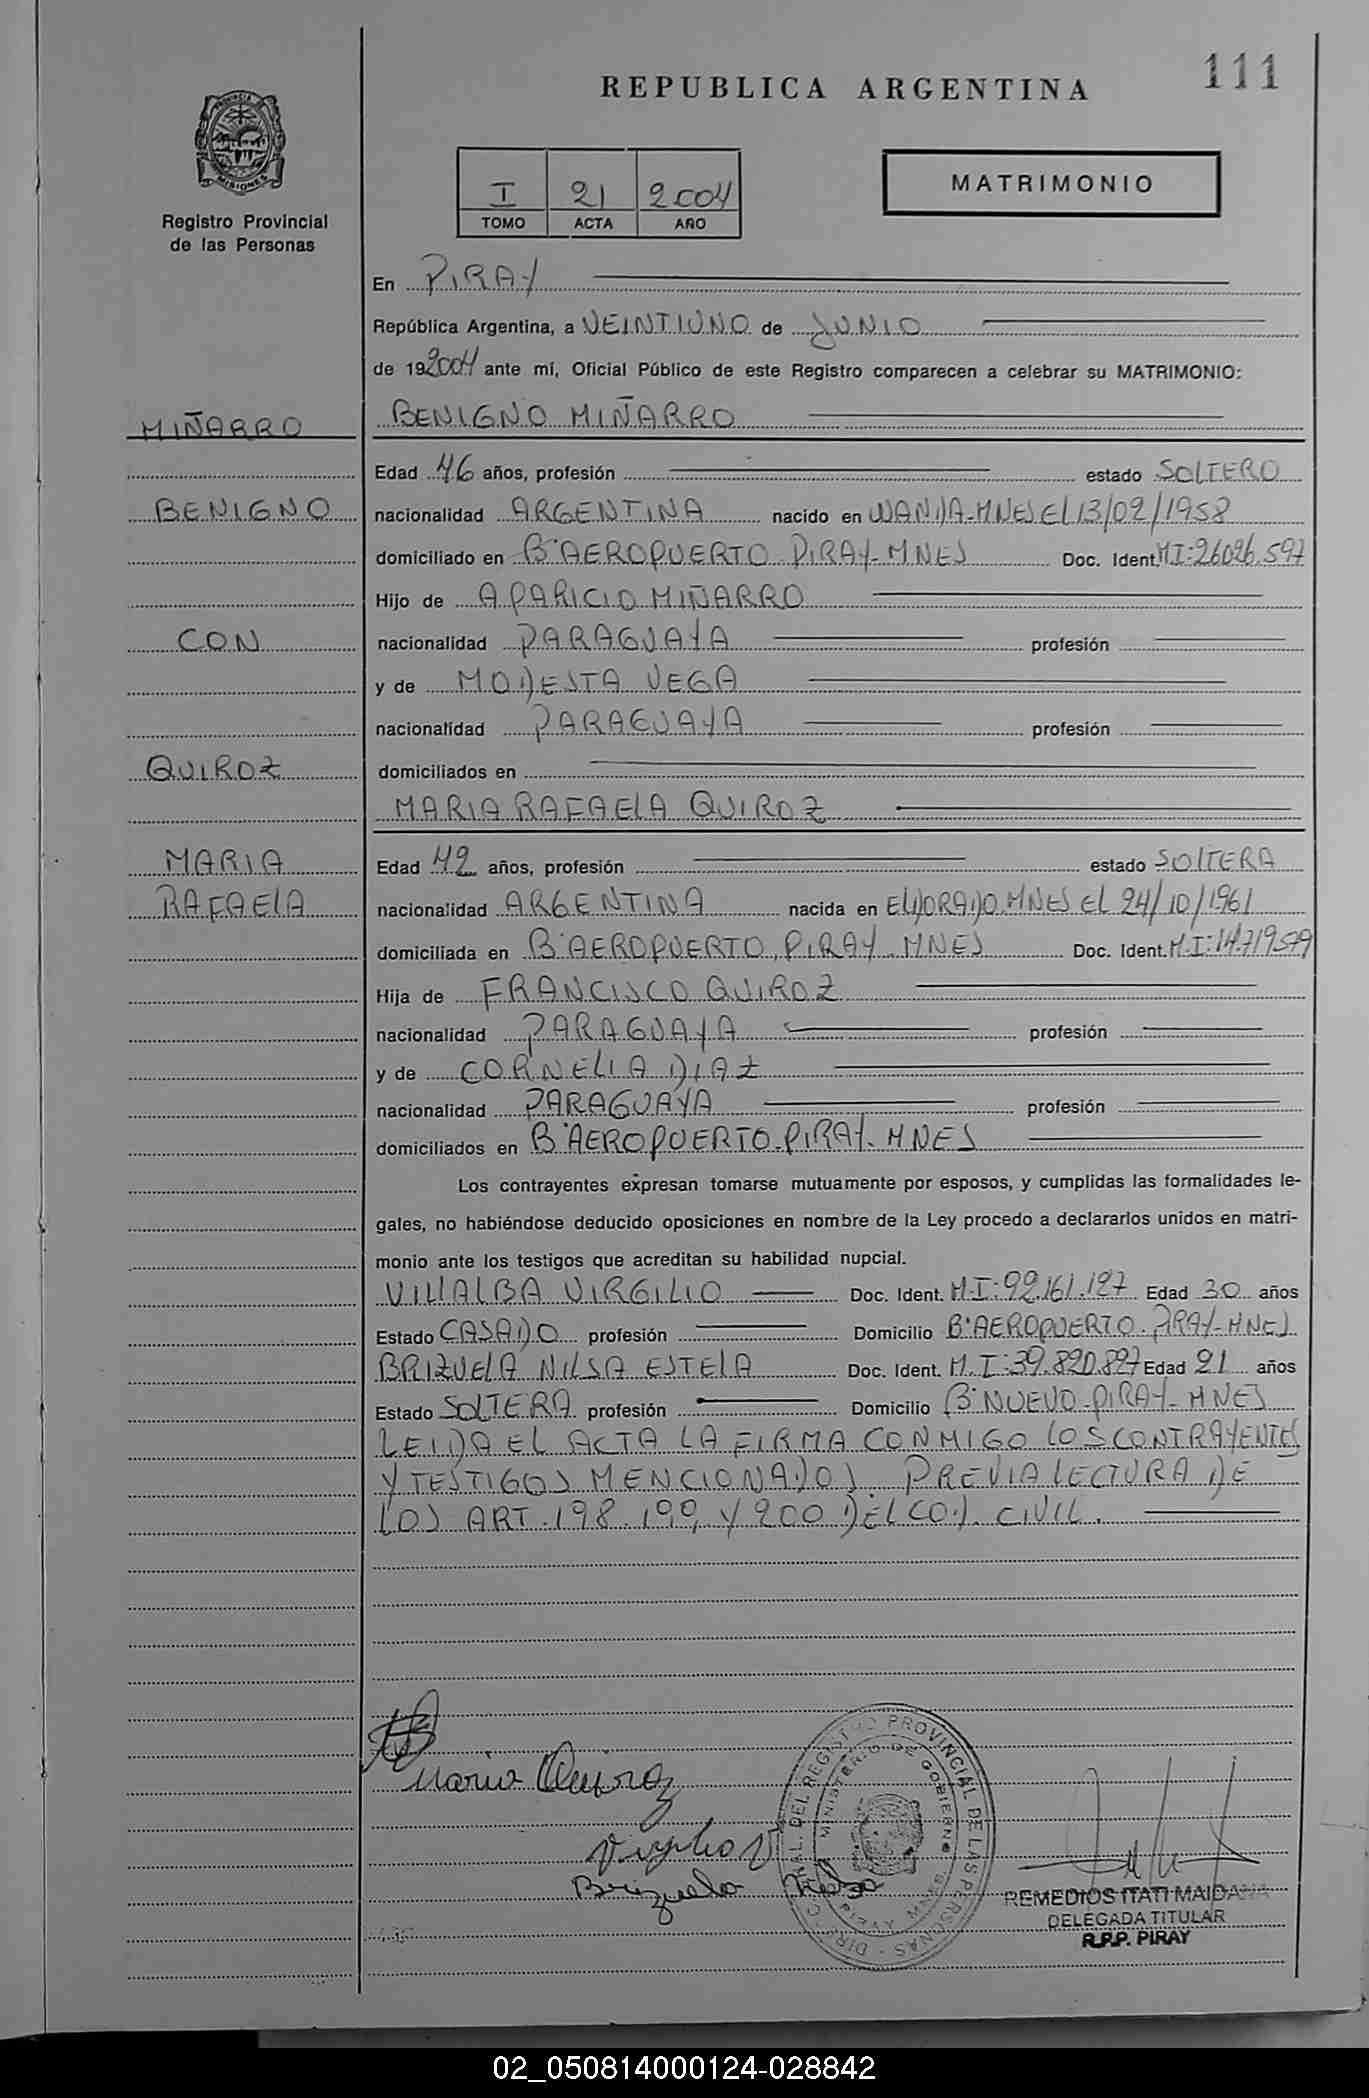 111
REPUBLICA ARGENTINA
PROVINCIA DE
MISIONES
Registro Provincial
de las Personas
I 21 2004
TOMO ACTA AÑO
MATRIMONIO
En PIRAY
República Argentina, a VEINTIUNO de JUNIO
de 192004 ante mí, Oficial Público de este Registro comparecen a celebrar su MATRIMONIO:
MIÑARRO BENIGNO MIÑARRO
Edad 46 años, profesión estado SOLTERO
BENIGNO nacionalidad ARGENTINA nacido en WANDA-MNES El 13/02/1958
domiciliado en B°AEROPUERTO-PIRAY-MNES Doc. Ident. M.I:26026.597
Hijo de APARICIO MIÑARRO
CON nacionalidad PARAGUAYA profesión
y de MODESTA VEGA
nacionalidad PARAGUAYA profesión
QUIROZ domiciliados en
MARIA RAFAELA QUIROZ
MARIA Edad 42 años, profesión estado SOLTERA
RAFAELA nacionalidad ARGENTINA nacida en ELDORADO.MNES EL 24/10/1961
domiciliada en B°AEROPUERTO, PIRAY-MNES Doc. Ident. M.I:14.719579
Hija de FRANCISCO QUIROZ
nacionalidad PARAGUAYA profesión
y de CORNELIA DIAZ
nacionalidad PARAGUAYA profesión
domiciliados en B°AEROPUERTO-PIRAY-MNES
Los contrayentes expresan tomarse mutuamente por esposos, y cumplidas las formalidades le-
gales, no habiéndose deducido oposiciones en nombre de la Ley procedo a declararlos unidos en matri-
monio ante los testigos que acreditan su habilidad nupcial.
VILLALBA VIRGILIO Doc. Ident. M.I:92.161.127 Edad 30 años
Estado CASADO profesión Domicilio B°AEROPUERTO-PIRAY-MNES
BRIZUELA NILSA ESTELA Doc. Ident. M.I:39.820.827 Edad 21 años
Estado SOLTERA profesión Domicilio B°NUEVO-PIRAY-MNES
LEIDA EL ACTA LA FIRMA CONMIGO LOS CONTRAYENTES
Y TESTIGOS MENCIONADOS. PREVIA LECTURA DE
LOS ART. 198.199, Y 200 DEL COD. CIVIL.
Maria Quiroz
Virgilio V
Brizuela Nilsa
DIREC. GRAL. DEL REGISTRO PROVINCIAL DE LAS PERSONAS
MINISTERIO DE GOBIERNO
REMEDIOS ITATI MAIDANA
DELEGADA TITULAR
R.P.P. PIRAY
02_050814000124-028842